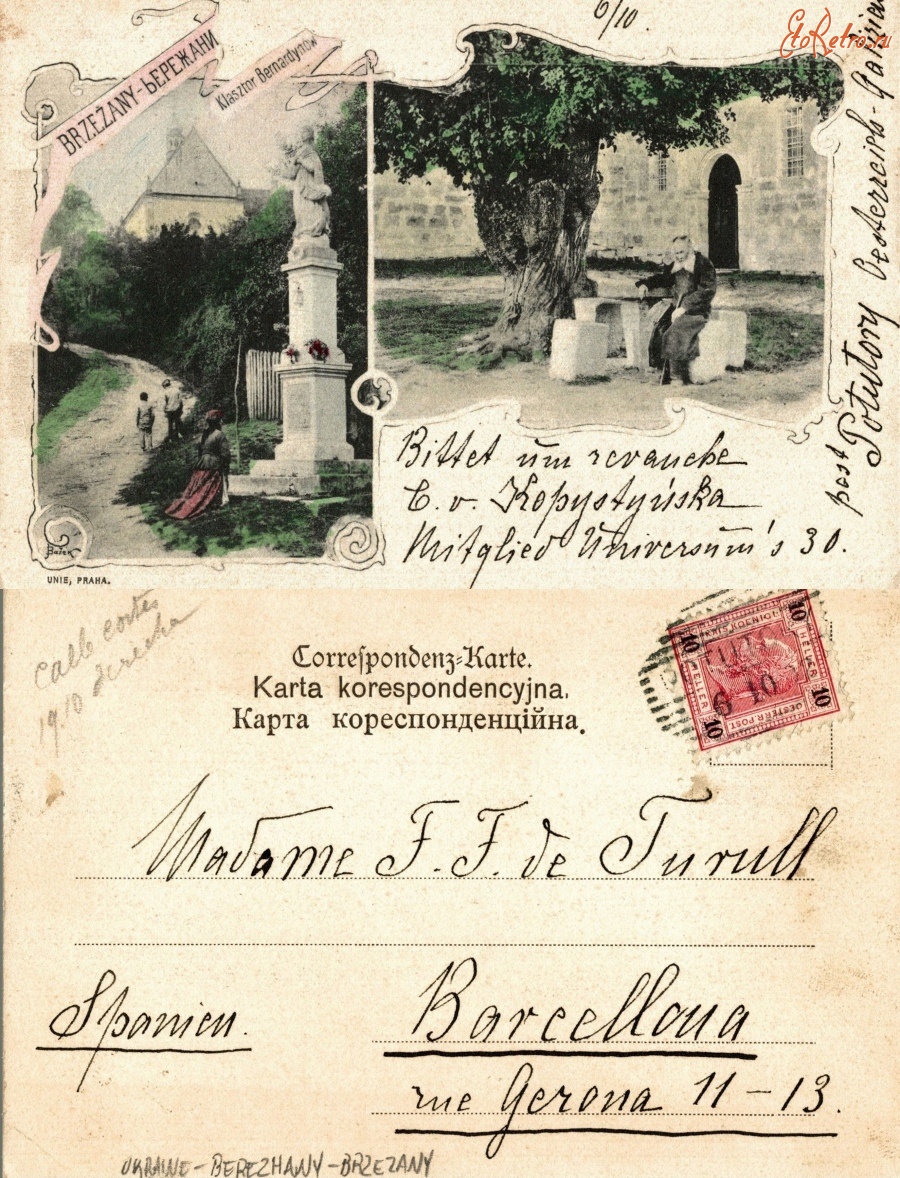 6/10
EtoRetro.ru
BRZEŻANY-БЕРЕЖАНИ
Klasztor Bernardynów
post Potutory Oesterreich-Galizien
Bittet um revanche
C. v. Kopystyńska
Mitglied Universum's 30.
UNIE, PRAHA.
calle cortes
1910 derecha
Correspondenz-Karte.
Karta korespondencyjna.
Карта кореспонденційна.
10 10
HELLER HELLER
OESTERR.POST
10 10
6 10
Madame F. F. de Turull
Spanien.
Barcellona
rue Gerona 11-13.
UKRAINE-BEREZHANY-BRZEZANY